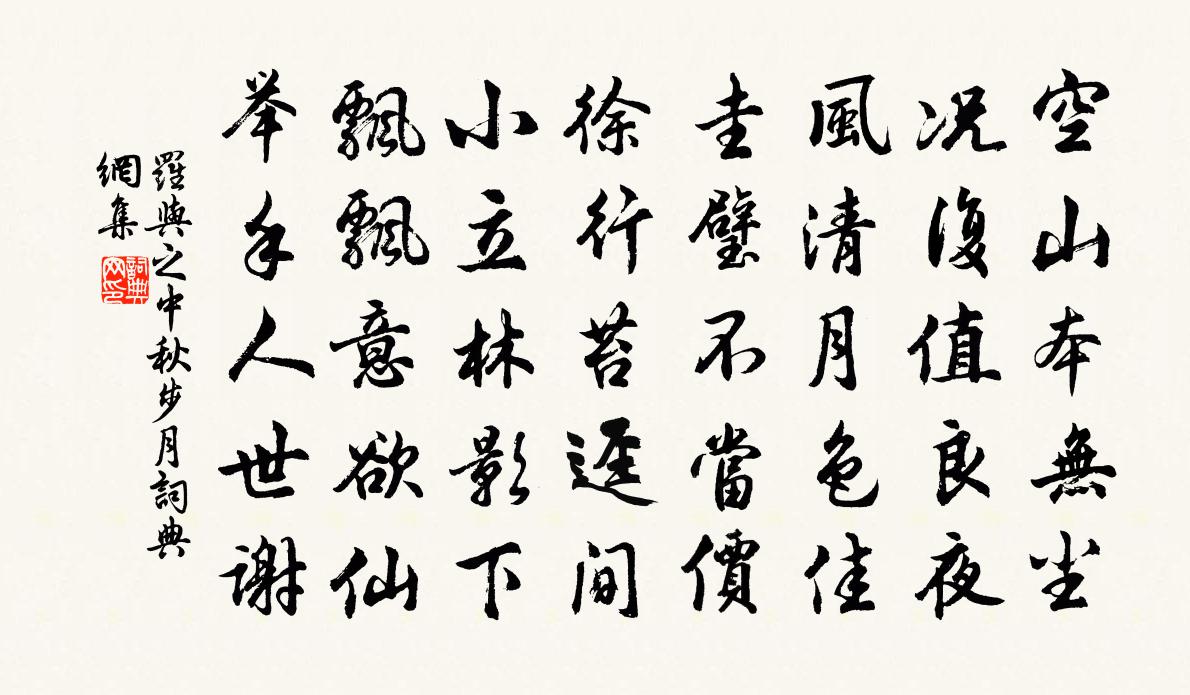 空山本無尘
况復值良夜
風清月色佳
圭璧不當價
徐行苔逕間
小立林影下
飄飄意欲仙
举手人世谢
羅與之中秋步月詞典
網集
詞典
网印